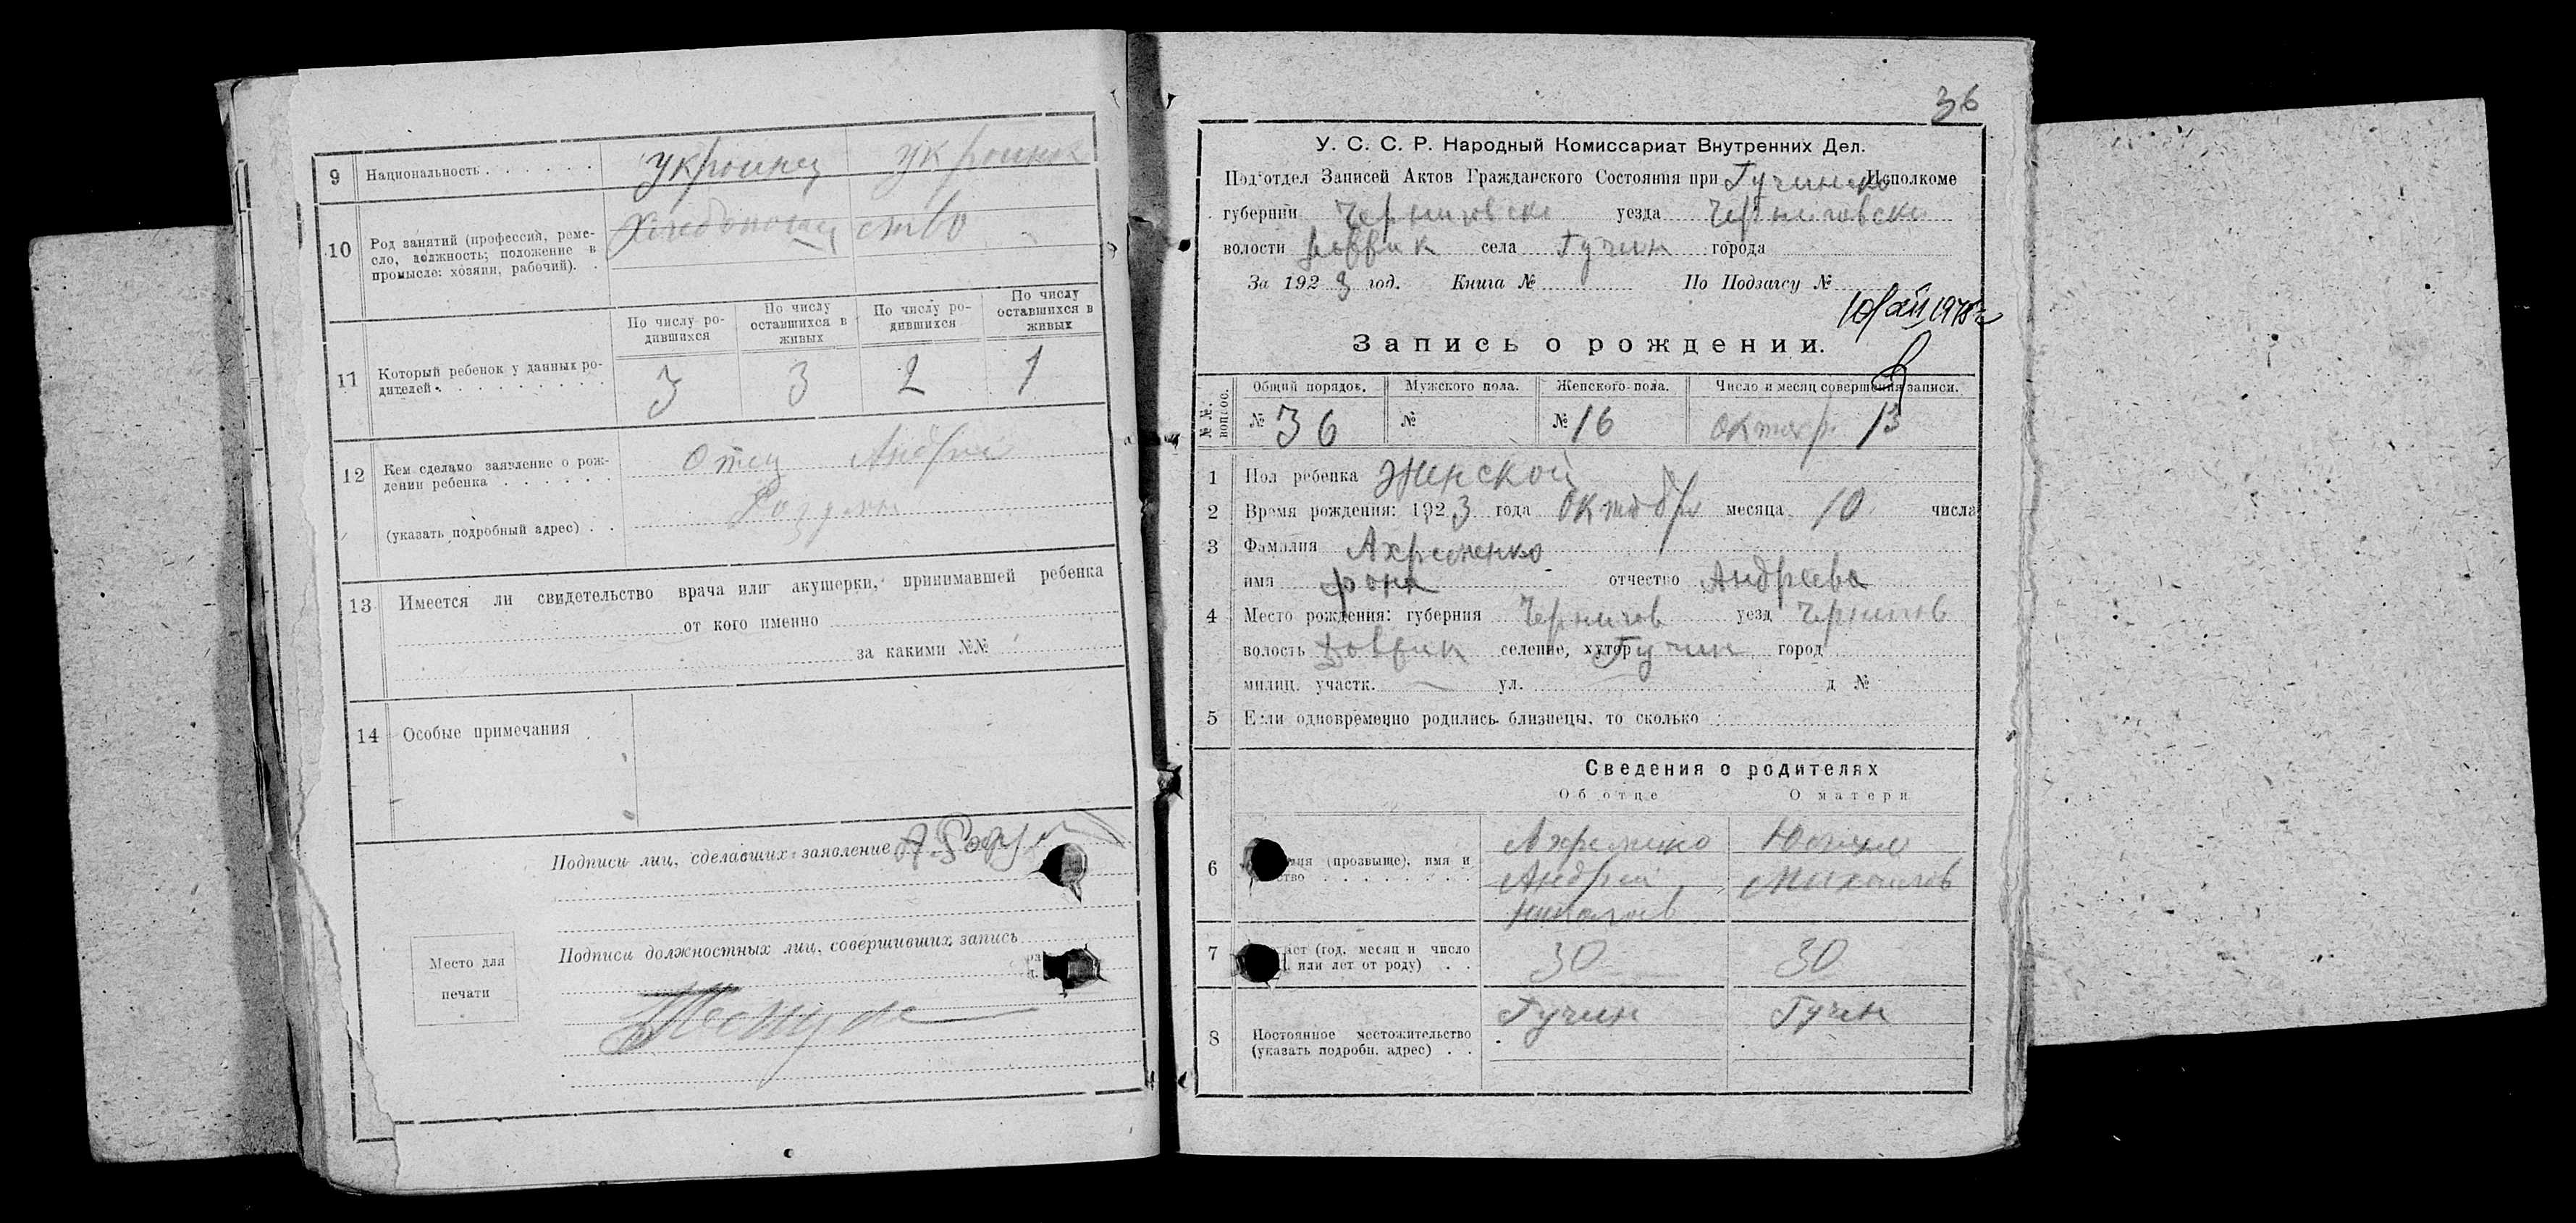 9 Национальность . . . . . . украинец украинк
10 Род занятий (профессия, реме-
сло, должность; положение в
промысле: хозяин, рабочий). .
По числу ро-
дившихся
По числу
оставшихся в
живых
По числу ро-
дившихся
По числу
оставшихся в
живых
11 Который ребенок у данных ро-
дителей . . . . . . . . . 3 3 2 1
12 Кем сделано заявление о рож-
дении ребенка . . . . . . Отец Андрей
(указать подробный адрес) . .
13 Имеется ли свидетельство врача или акушерки, принимавшей ребенка
от кого именно
за какими №№
14 Особые примечания
Подписи лиц, сделавших заявление
Подписи должностных лиц, совершивших запись
Место для
печати
36
У. С. С. Р. Народный Комиссариат Внутренних Дел.
Подотдел Записей Актов Гражданского Состояния при Исполкоме
губернии Черниговск уезда Черниговск
волости села Гучин города
За 1923 год. Книга № По Подзагсу №
Запись о рождении.
№№ вопрос. Общий порядок. Мужского пола. Женского пола. Число и месяц совершения записи.
№ 36 № № 16 октяр. 13
1 Пол ребенка Женской
2 Время рождения: 1923 года Октобря месяца 10 числа
3 Фамилия Ахременко
имя отчество Андреева
4 Место рождения: губерния Чернигов уезд Чернигов
волость селение, хутор Гучин город
милиц. участк. ул. д №
5 Если одновременно родились близнецы, то сколько
Сведения о родителях
Об отце О матери
6 (прозвище), имя и
Ахременко
Андрей Михайлов
Николаев
7 (год, месяц и число
или лет от роду) . . 30 30
8 Постоянное местожительство
(указать подробн. адрес) . . Гучин Гучин